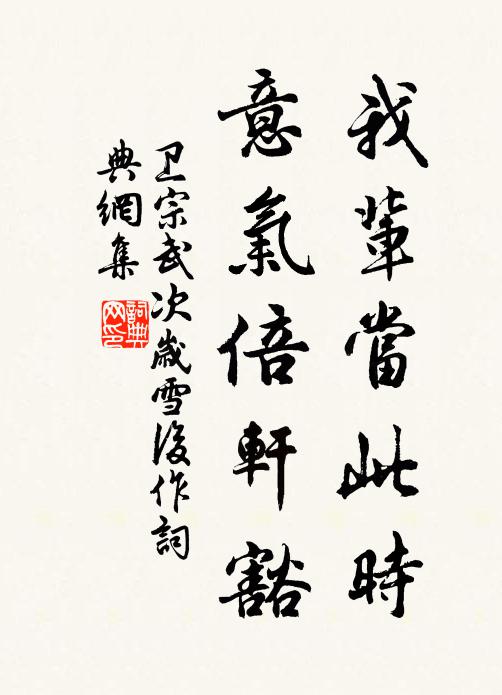 我輩當此時
意氣倍軒豁
卫宗武次歲雪後作詞
典網集
詞典网印